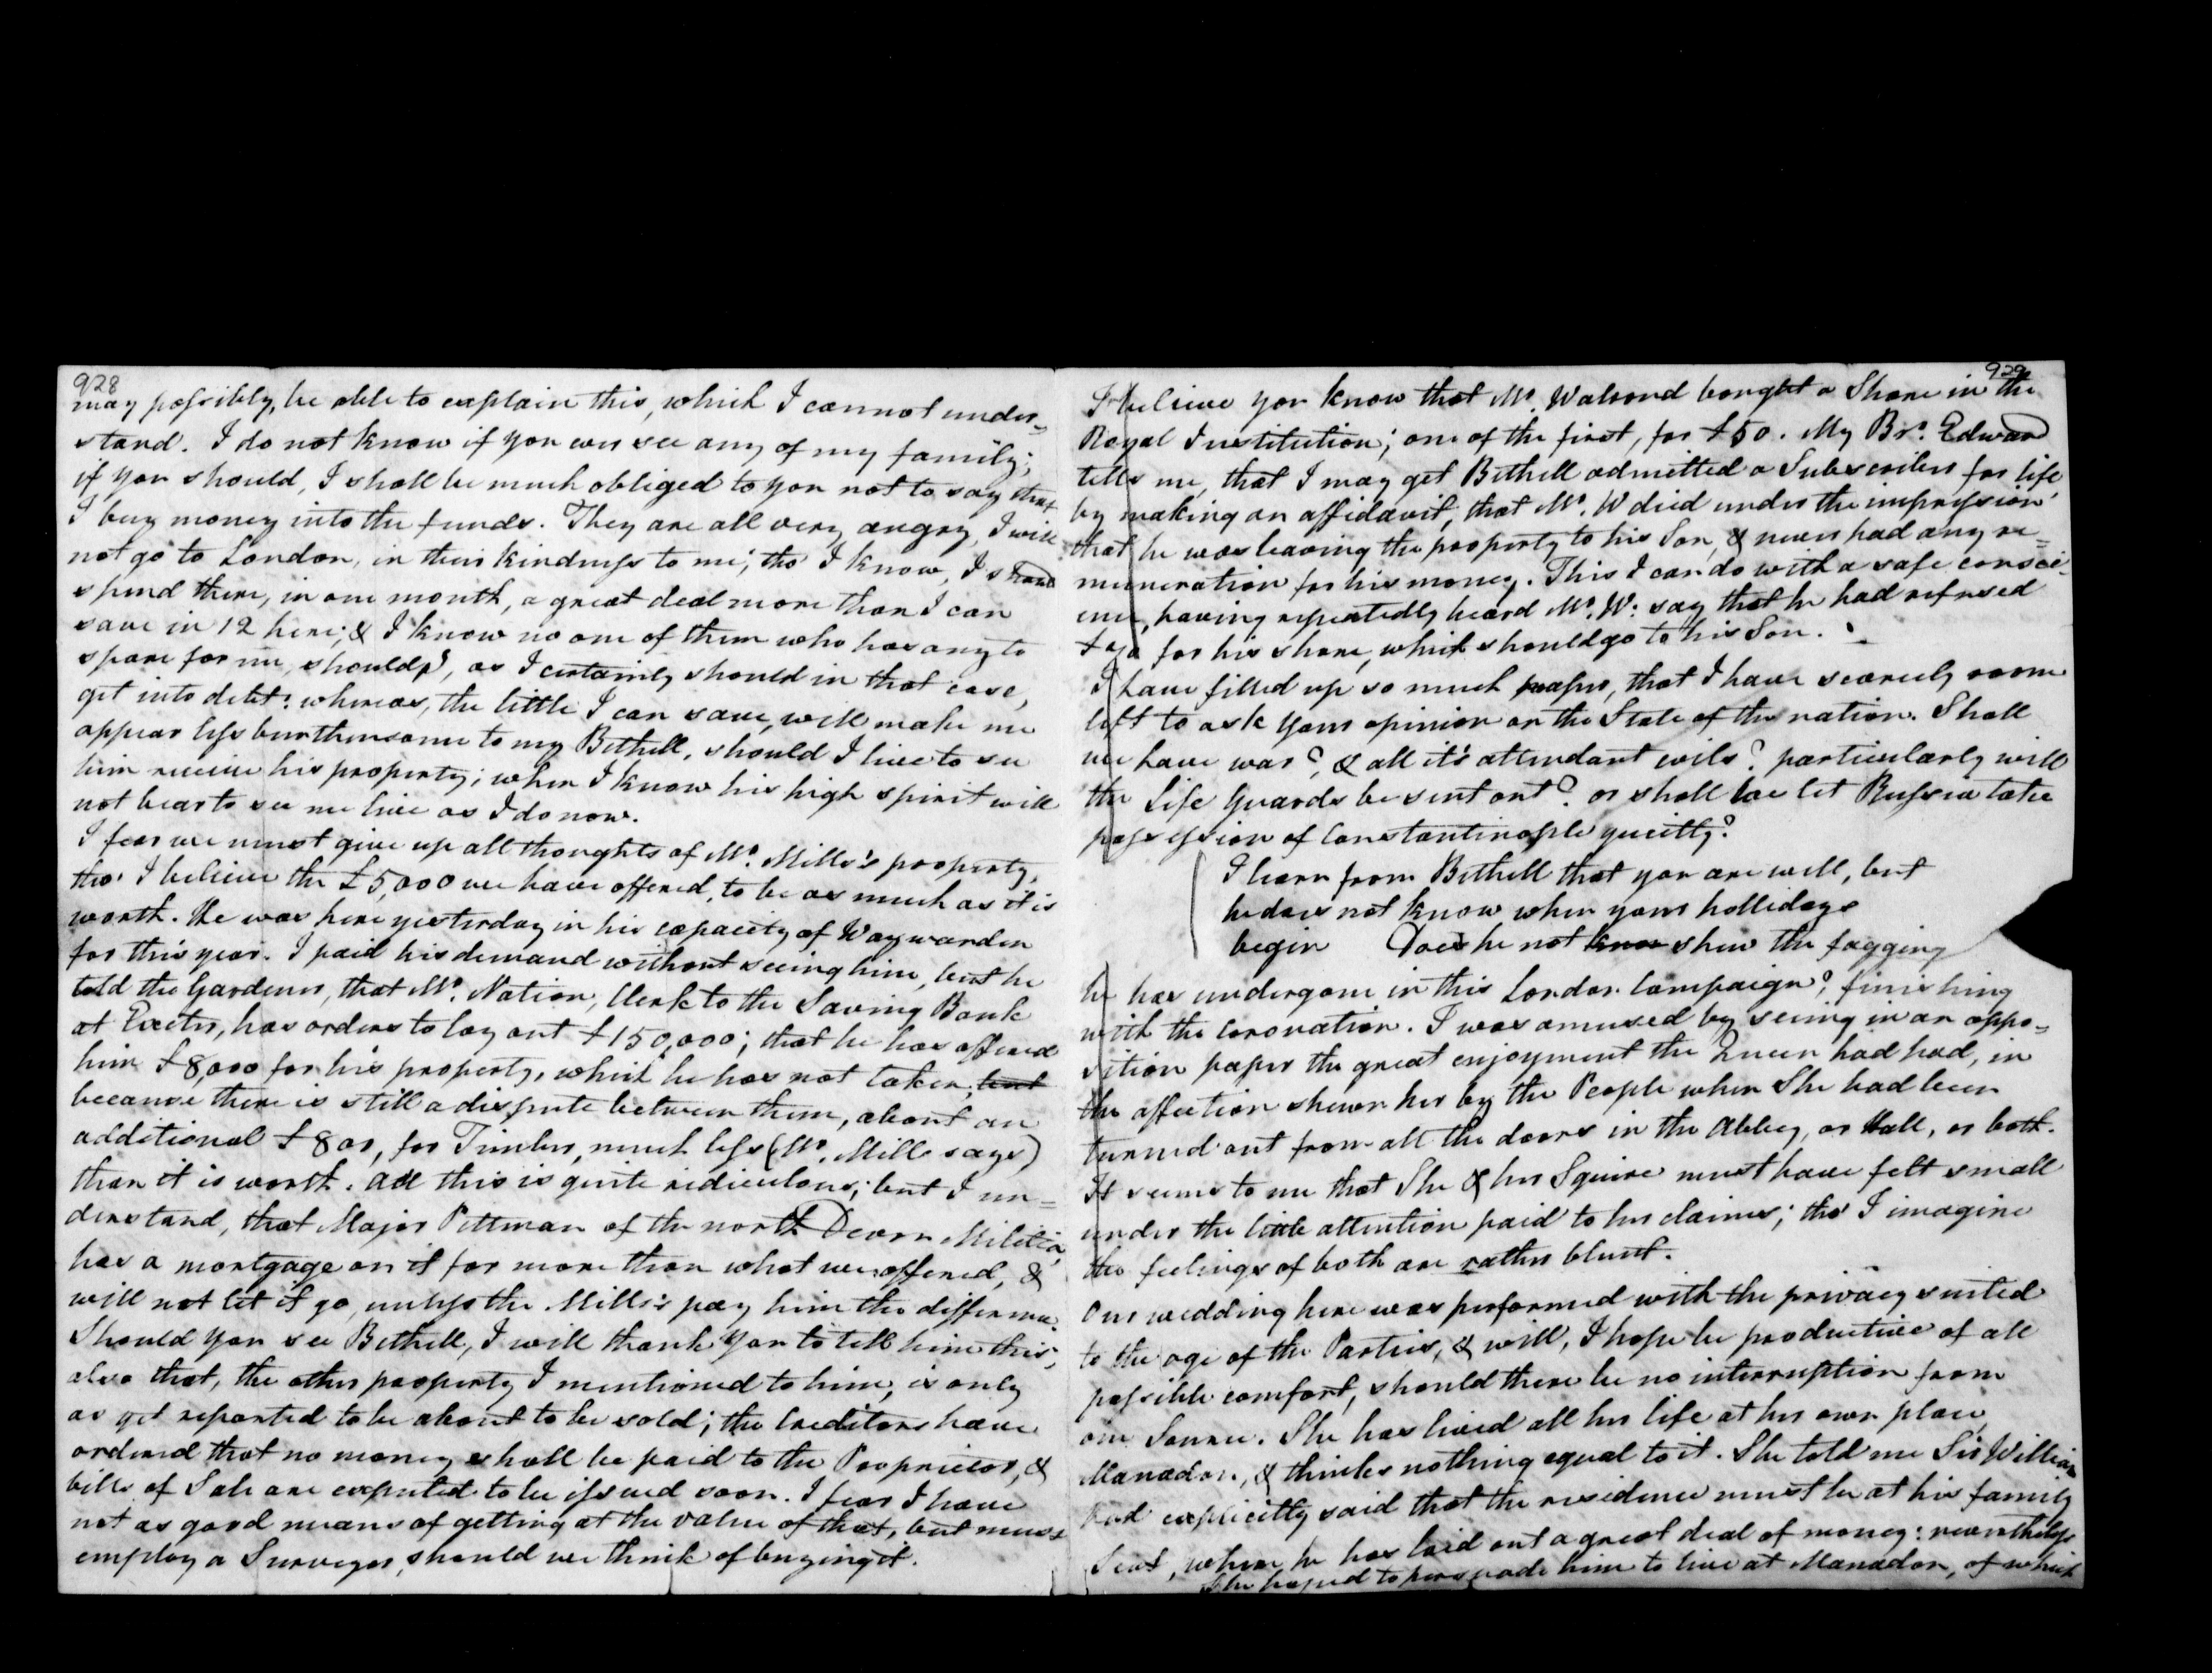 928
may possibly, be able to explain this, which I cannot under=
stand. I do not know if you ever see any of my family;
if you should, I shall be much obliged to you not to say that
I buy money into the funds. They are all very angry, I will
not go to London, in their kindness to me; tho' I know, I should
spend there, in one month, a great deal more than I can
save in 12 here; & I know no one of them who has any to
spare for me, should I, as I certainly should in that case,
get into debt: whereas, the little I can save, will make me
appear less burthensome to my Bethell, should I live to see
him receive his property; when I know his high spirit will
not bear to see me live as I do now.
I fear we must give up all thoughts of Mr. Mills's property,
tho' I believe the £5,000 we have offered, to be as much as it is
worth. He was here yesterday in his capacity of Waywarden
for this year. I paid his demand without seeing him, but he
told the Gardener, that Mr. Nation, Clerk to the Saving Bank
at Exeter, has orders to lay out £150,000; that he has offered
him £8,000 for his property, which he has not taken, but
because there is still a dispute between them, about an
additional £800, for Timber, much less (Mr. Mills says)
than it is worth. All this is quite ridiculous; but I un=
derstand, that Major Pittman of the north Devon Militia,
has a mortgage on it for more than what we offered, &
will not let it go, unless the Mills's pay him the difference.
Should you see Bethell, I will thank you to tell him this;
also that, the other property I mentioned to him, is only
as yet reported to be about to be sold; the Creditors have
ordered that no money shall be paid to the Proprietor, &
bills of Sale are expected to be issued soon. I fear I have
not as good means of getting at the value of that, but must
employ a Surveyor, should we think of buying it.
929
I believe you know that Mr. Walrond bought a Share in the
Royal Institution; one of the first, for £50. My Br. Edward
tells me, that I may get Bethell admitted a Subscriber for life
by making an affidavit, that Mr. W died under the impression
that he was leaving the property to his Son, & never had any re=
muneration for his money. This I can do with a safe consci=
ence, having repeatedly heard Mr. W: say that he had refused
for his share, which should go to his Son.
I have filled up so much paper, that I have scarcely room
left to ask your opinion on the State of the nation. Shall
we have war?, & all it's attendant evils? particularly will
the Life Guards be sent out? or shall we let Russia take
possession of Constantinople quietly?
I learn from Bethell that you are well, but
he does not know when your hollidays
begin Does he not know shew the fagging
he has undergone in this London Campaign? finishing
with the Coronation. I was amused by seeing in an oppo=
sition paper the great enjoyment the Queen had had, in
the affection shewn her by the People when She had been
turned out from all the doors in the Abbey, or Hall, or both.
It seems to me that She & her Squire must have felt small
under the little attention paid to her claims; tho' I imagine
the feelings of both are rather blunt.
Our wedding here was performed with the privacy suited
to the age of the Parties, & will, I hope be productive of all
possible comfort, should there be no interruption from
one Source. She has lived all her life at her own place,
Manadon, & thinks nothing equal to it. She told me Sir William
had explicitly said that the residence must be at his family
Seat, where he has laid out a great deal of money: nevertheless
She hoped to persuade him to live at Manadon, of which